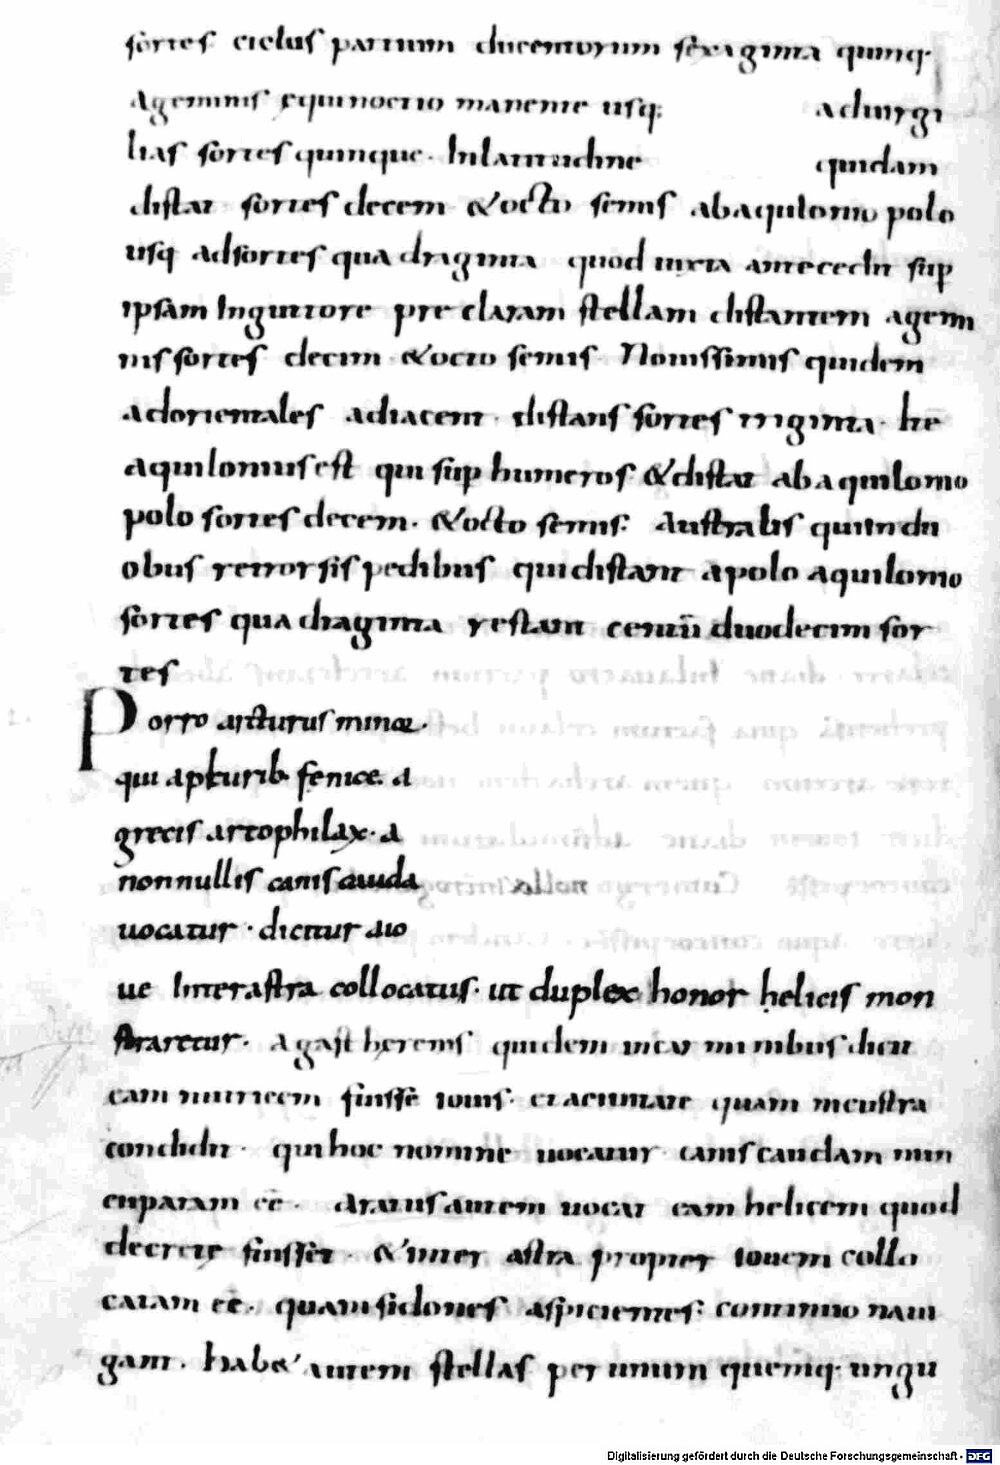 sortes cielus partium ducentorum sexaginta quinq·
ageminis equinoctio manente usq; aduirgi
lias sortes quinque· Inlatitudine quidam
distat sortes decem &octo semis abaquilonio polo
usq adsortes quadraginta quod iuxta antecedit sup
ipsam Inguttore preclaram stellam distantem agemi
nis sortes decim &octo semis· Nouissimus quidem
adorientales adiacent· distans sortes triginta· hē
aquilonius est qui sup humeros &distat abaquilonio
polo sortes decem· &octo semis: Australis quiindu
obus retrorsis pedibus quidistant apolo aquilonio
sortes quadraginta restant centū duodecim sor
tes
Porro arcturus minor·
qui apturib· fenice a
grecis artophilax· a
nonnullis canis cauda
uocatur· dicitur a io
ue Interastra collocatus· ut duplex honor helicis mon
straretur· Agasthenis quidem incarminibus dicit
eam nutricem fuisse iouis· et acimitate quam incustra
condidit· qui hoc nomine uocatur· canis caudam nun
cuparam eē· Aratus autem uocat eam helicem quod
decrete fuisset· &inter astra propter iouem collo
catam eē· quam sidones aspicientes: continuo naui
gant· hab& autem stellas per unum quemq: angu
Digitalisierung gefördert durch die Deutsche Forschungsgemeinschaft - DFG